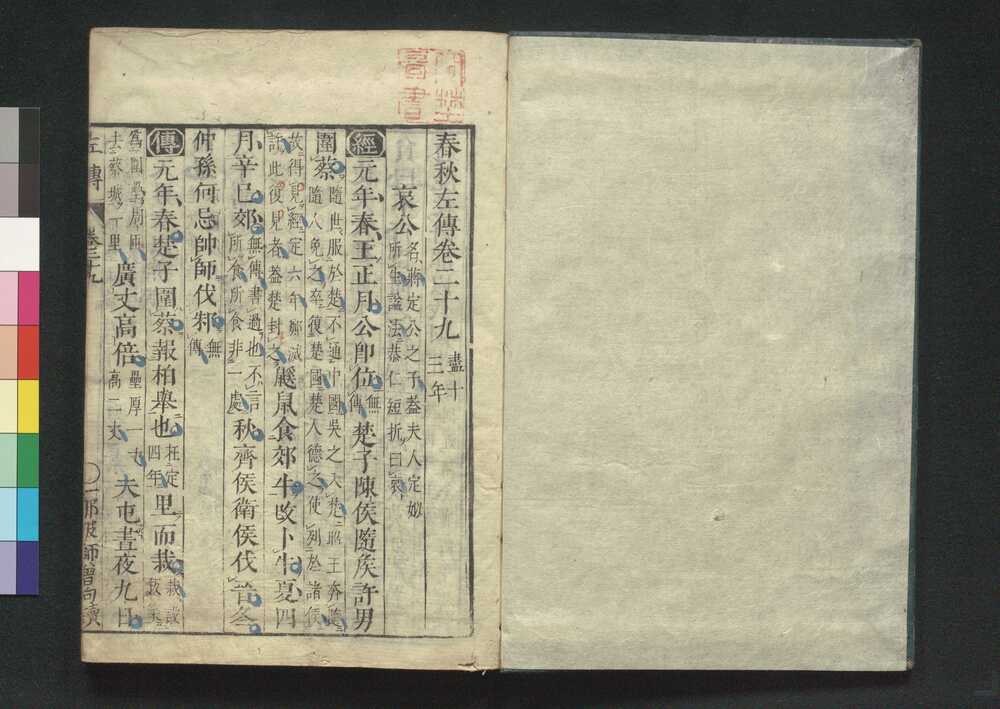 春秋左傳卷二十九 盡十三年
哀公 名蔣定公之子蓋夫人定姒所生諡法恭仁短折曰哀
經 元年春王正月公即位 無傳 楚子陳侯隨侯許男
圍蔡 隨世服於楚不通中國吳之入楚昭王奔隨隨人免之卒復楚國楚人德之使列於諸侯
故得見經定六年鄭滅許此復見者蓋楚封之 鼷鼠食郊牛改卜牛夏四
月辛巳郊 無傳書過也不言所食所食非一處 秋齊侯衛侯伐晉冬
仲孫何忌帥師伐邾 無傳
傳 元年春楚子圍蔡報柏舉也 在定四年 里而栽 栽設
爲圍壘周匝去蔡城一里 廣丈高倍 壘厚一丈高二丈 夫屯晝夜九日
左傳 卷二十九 一 那波師曾句讀